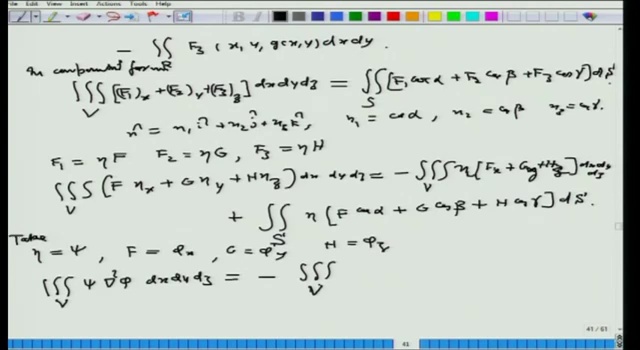 File Edit View Insert Actions Tools Help
- ∬_R F₃(x, y, g(x,y)) dx dy.
In component form
∭_V [(F₁)_x + (F₂)_y + (F₃)_z] dx dy dz = ∬_S [F₁ cos α + F₂ cos β + F₃ cos γ] dS
n̂ = n₁ î + n₂ ĵ + n₃ k̂, n₁ = cos α, n₂ = cos β n₃ = cos γ.
F₁ = ηF F₂ = ηG, F₃ = ηH
∭_V (F η_x + G η_y + H η_z) dx dy dz = - ∭_V η [F_x + G_y + H_z] dx dy dz
+ ∬_S η [F cos α + G cos β + H cos γ] dS.
Take
η = ψ, F = φ_x, G = φ_y H = φ_z
∭_V ψ ∇²φ dx dy dz = - ∭_V
41 / 61
41